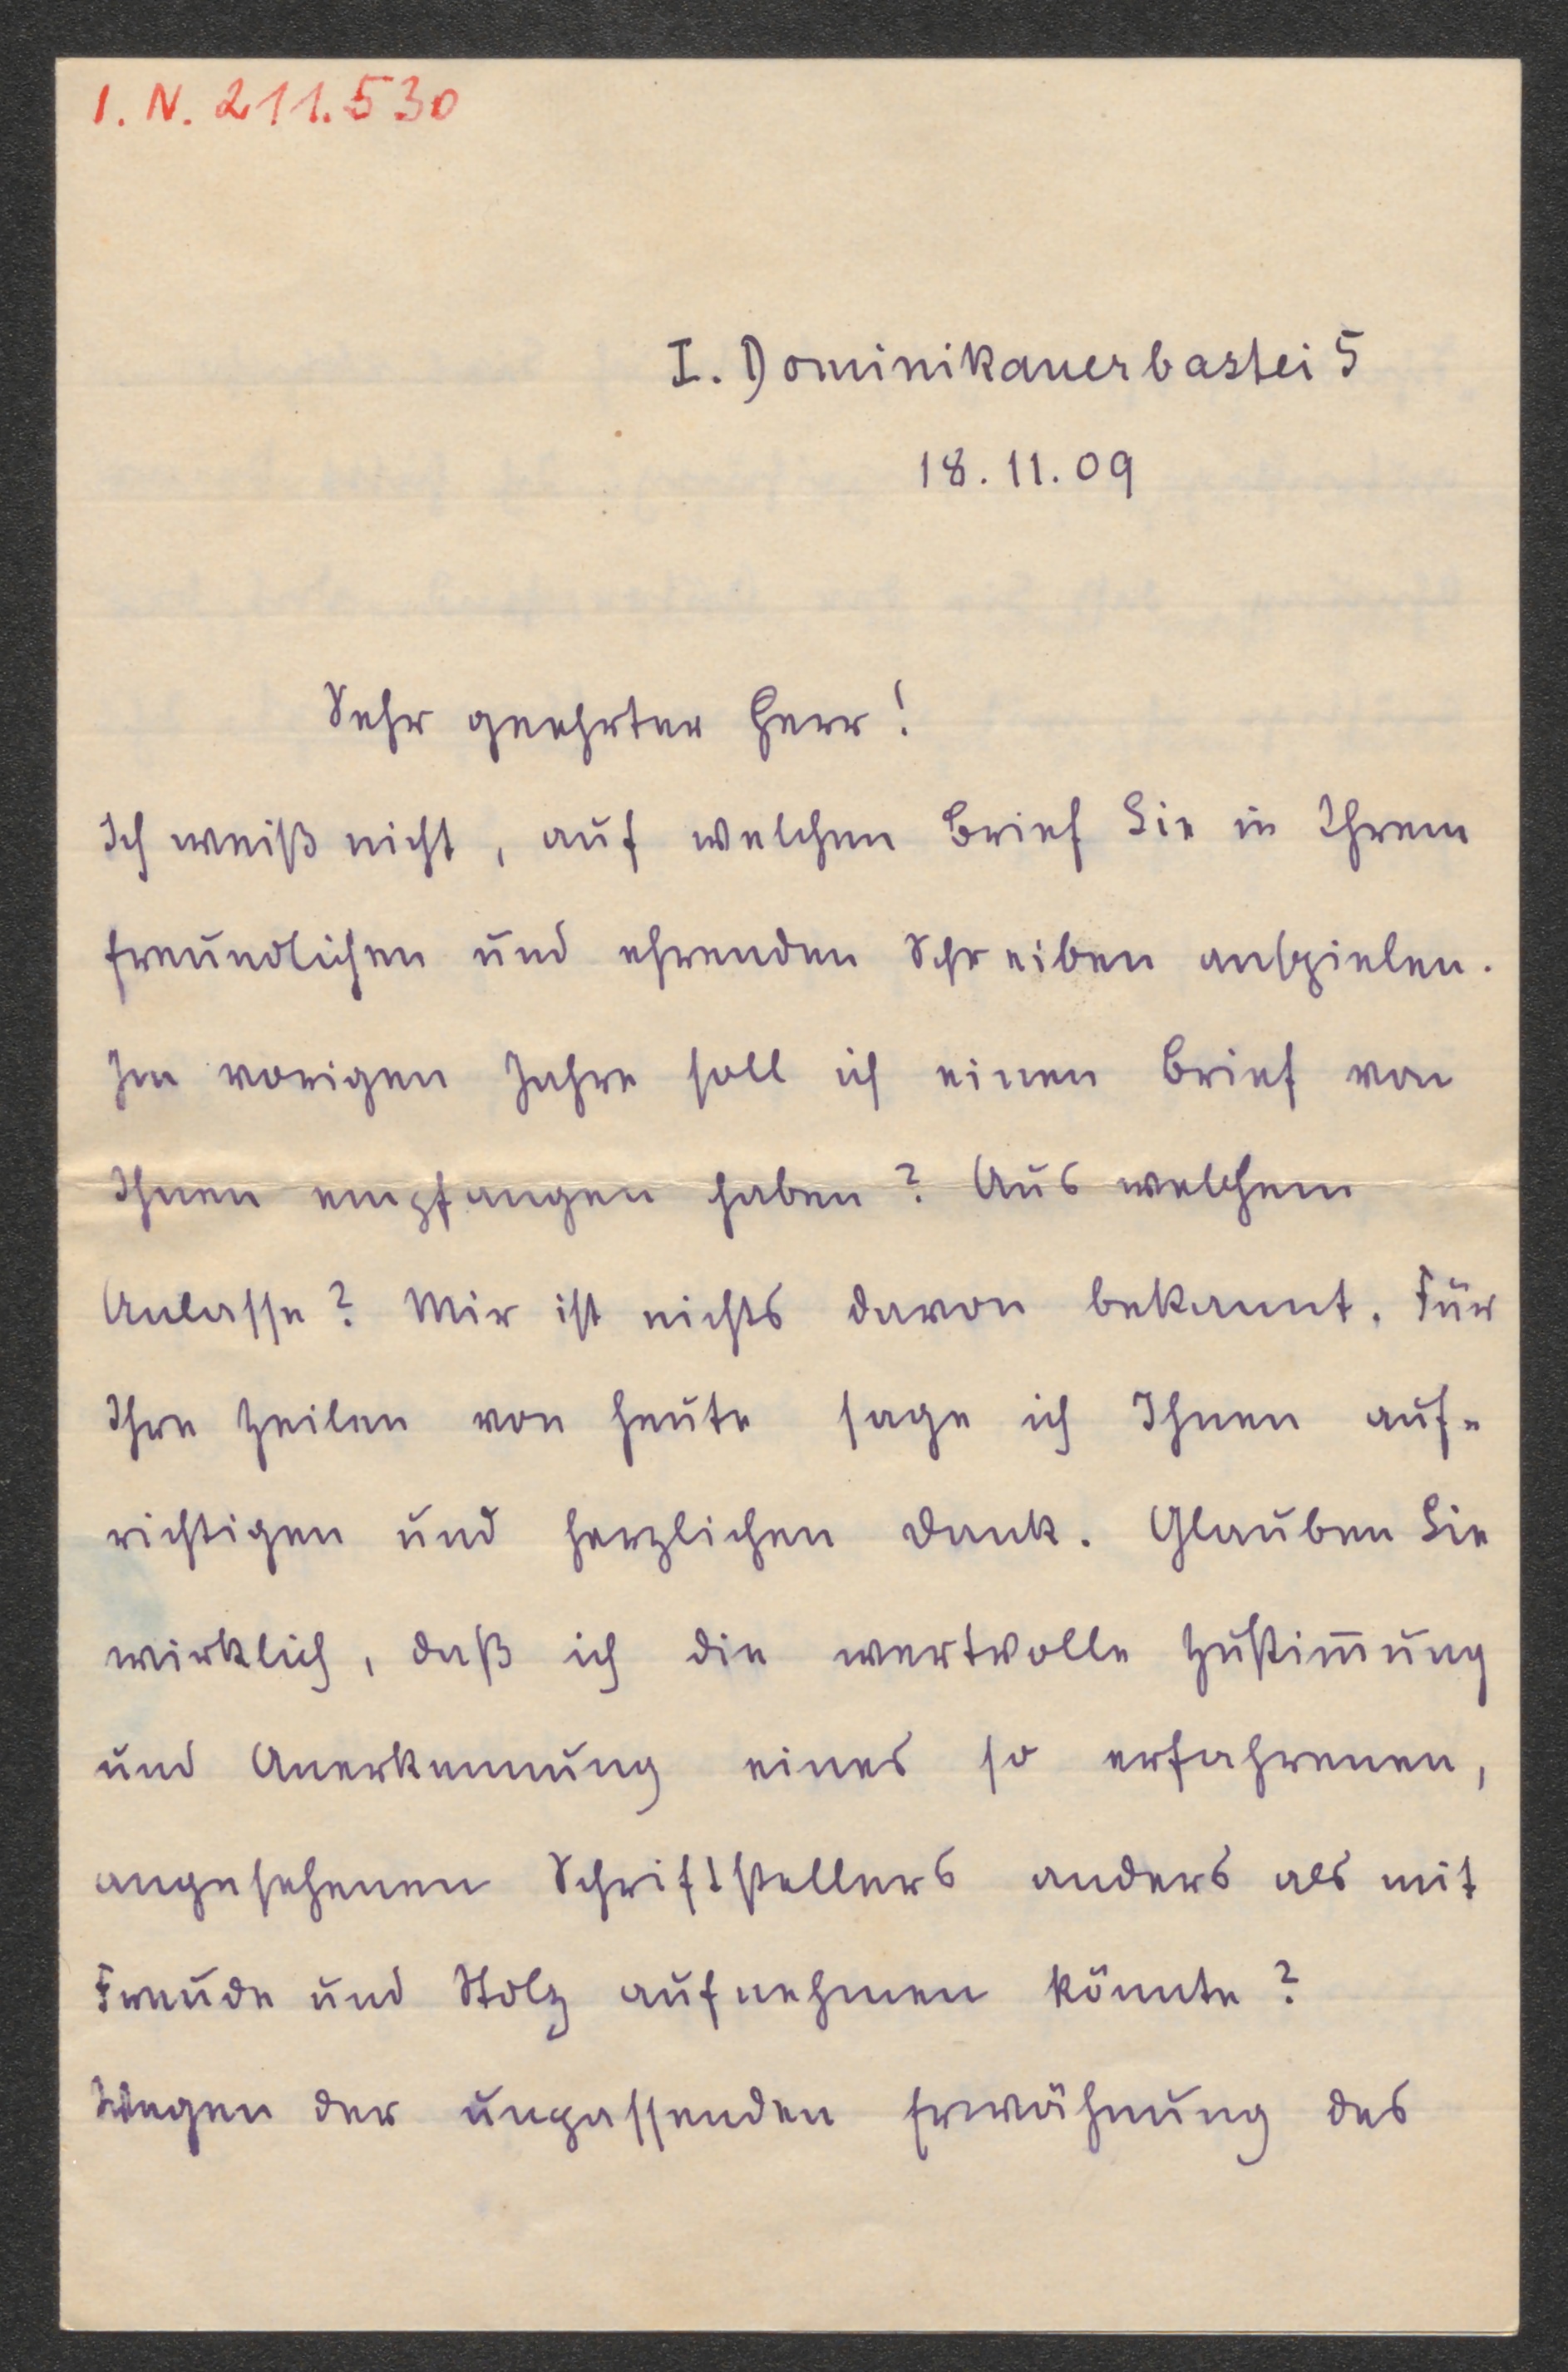 I. N. 211.530
I. Dominikanerbastei 5
18. 11. 09
Sehr geehrter Herr!
Ich weiß nicht, auf welchen Brief Sie in Ihrem
freundlichen und ehrenden Schreiben anspielen.
Im vorigen Jahre soll ich einen Brief von
Ihnen empfangen haben? Aus welchem
Anlasse? Mir ist nichts davon bekannt. Für
Ihre Zeilen von heute sage ich Ihnen auf-
richtigen und herzlichen Dank. Glauben Sie
wirklich, daß ich die wertvolle Zustim̅ung
und Anerkennung eines so erfahrenen,
angesehenen Schriftstellers anders als mit
Freude und Stolz aufnehmen könnte?
Wegen der unpassenden Erwähnung des